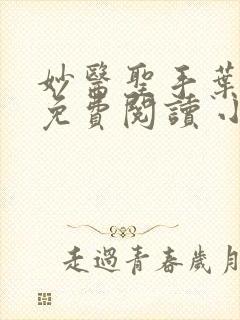 妙醫聖手葉
免費閱讀小
走過青春歲月